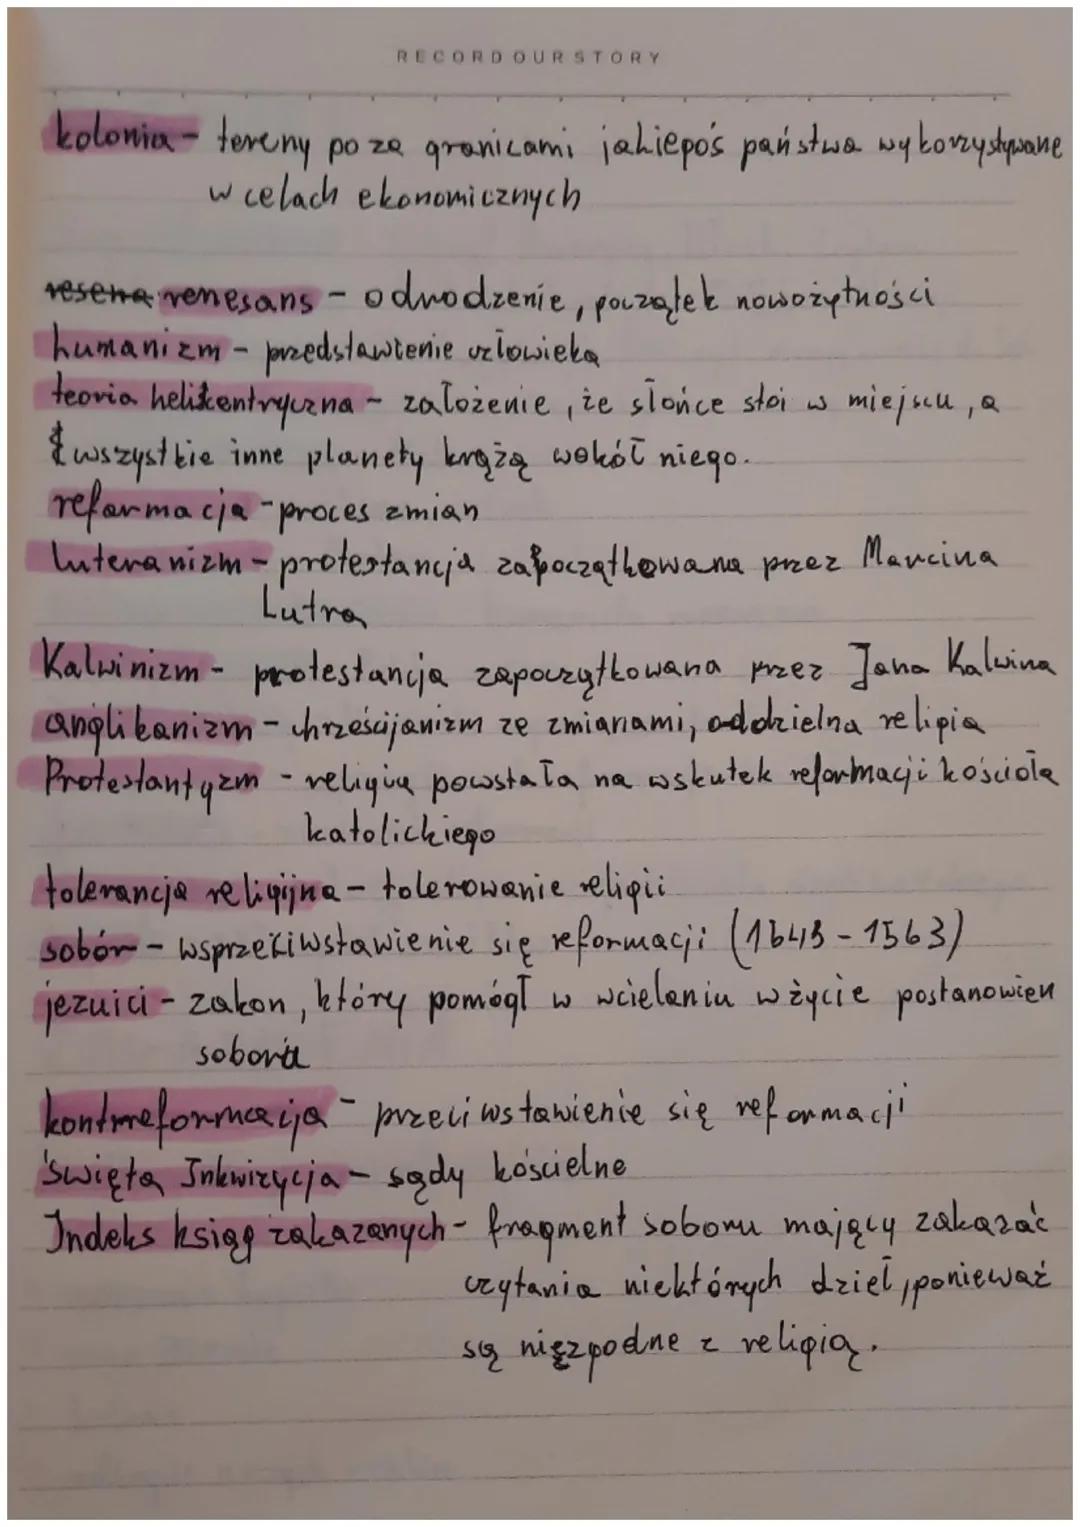 RECORD OUR STORY
kolonia - tereny poza granicami jakiegoś państwa wykorzystywane
w celach ekonomicznych
resena renesans - odrodzenie, początek nowożytności
humanizm - przedstawienie człowieka
teoria helikentryczna - założenie, że słońce stoi w miejscu, a
wszystkie inne planety krążą wokół niego.
reformacja - proces zmian
luteranizm - protestancja zapoczątkowana przez Marcina
Lutra
Kalwinizm - protestancja zapoczątkowana przez Jana Kalwina
anglikanizm - chrześcijanizm ze zmianami, oddzielna religia
Protestantyzm - religia powstała na wskutek reformacji kościoła
katolickiego
tolerancja religijna - tolerowanie religii
sobór - wsprzeciwstawienie się reformacji (1545 - 1563)
jezuici - zakon, który pomógł w wcielaniu w życie postanowien
soboru
kontrreformacija - przeciwstawienie się reformacji
Święta Inkwizycja - sądy kościelne
Indeks ksiąg zakazanych - fragment soboru mający zakazać
czytania niektórych dzieł, ponieważ
są niezgodne z religią.